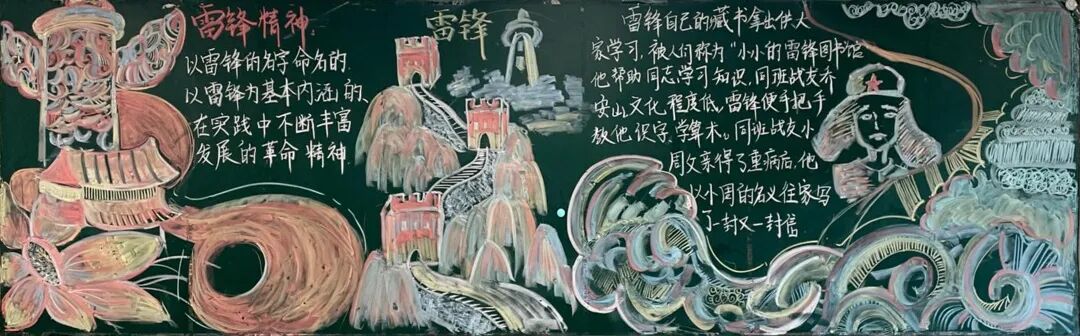 雷锋精神：
以雷锋的名字命名的、
以雷锋为基本内涵的、
在实践中不断丰富
发展的革命精神
雷锋
雷锋自己的藏书拿出供人
家学习，被人们称为“小小的雷锋图书馆
他帮助同志学习知识，同班战友乔
安山文化，程度低，雷锋便手把手
教他识字、学算术。同班战友小
周父亲得了重病后，他
以小周的名义往家写
了一封又一封信